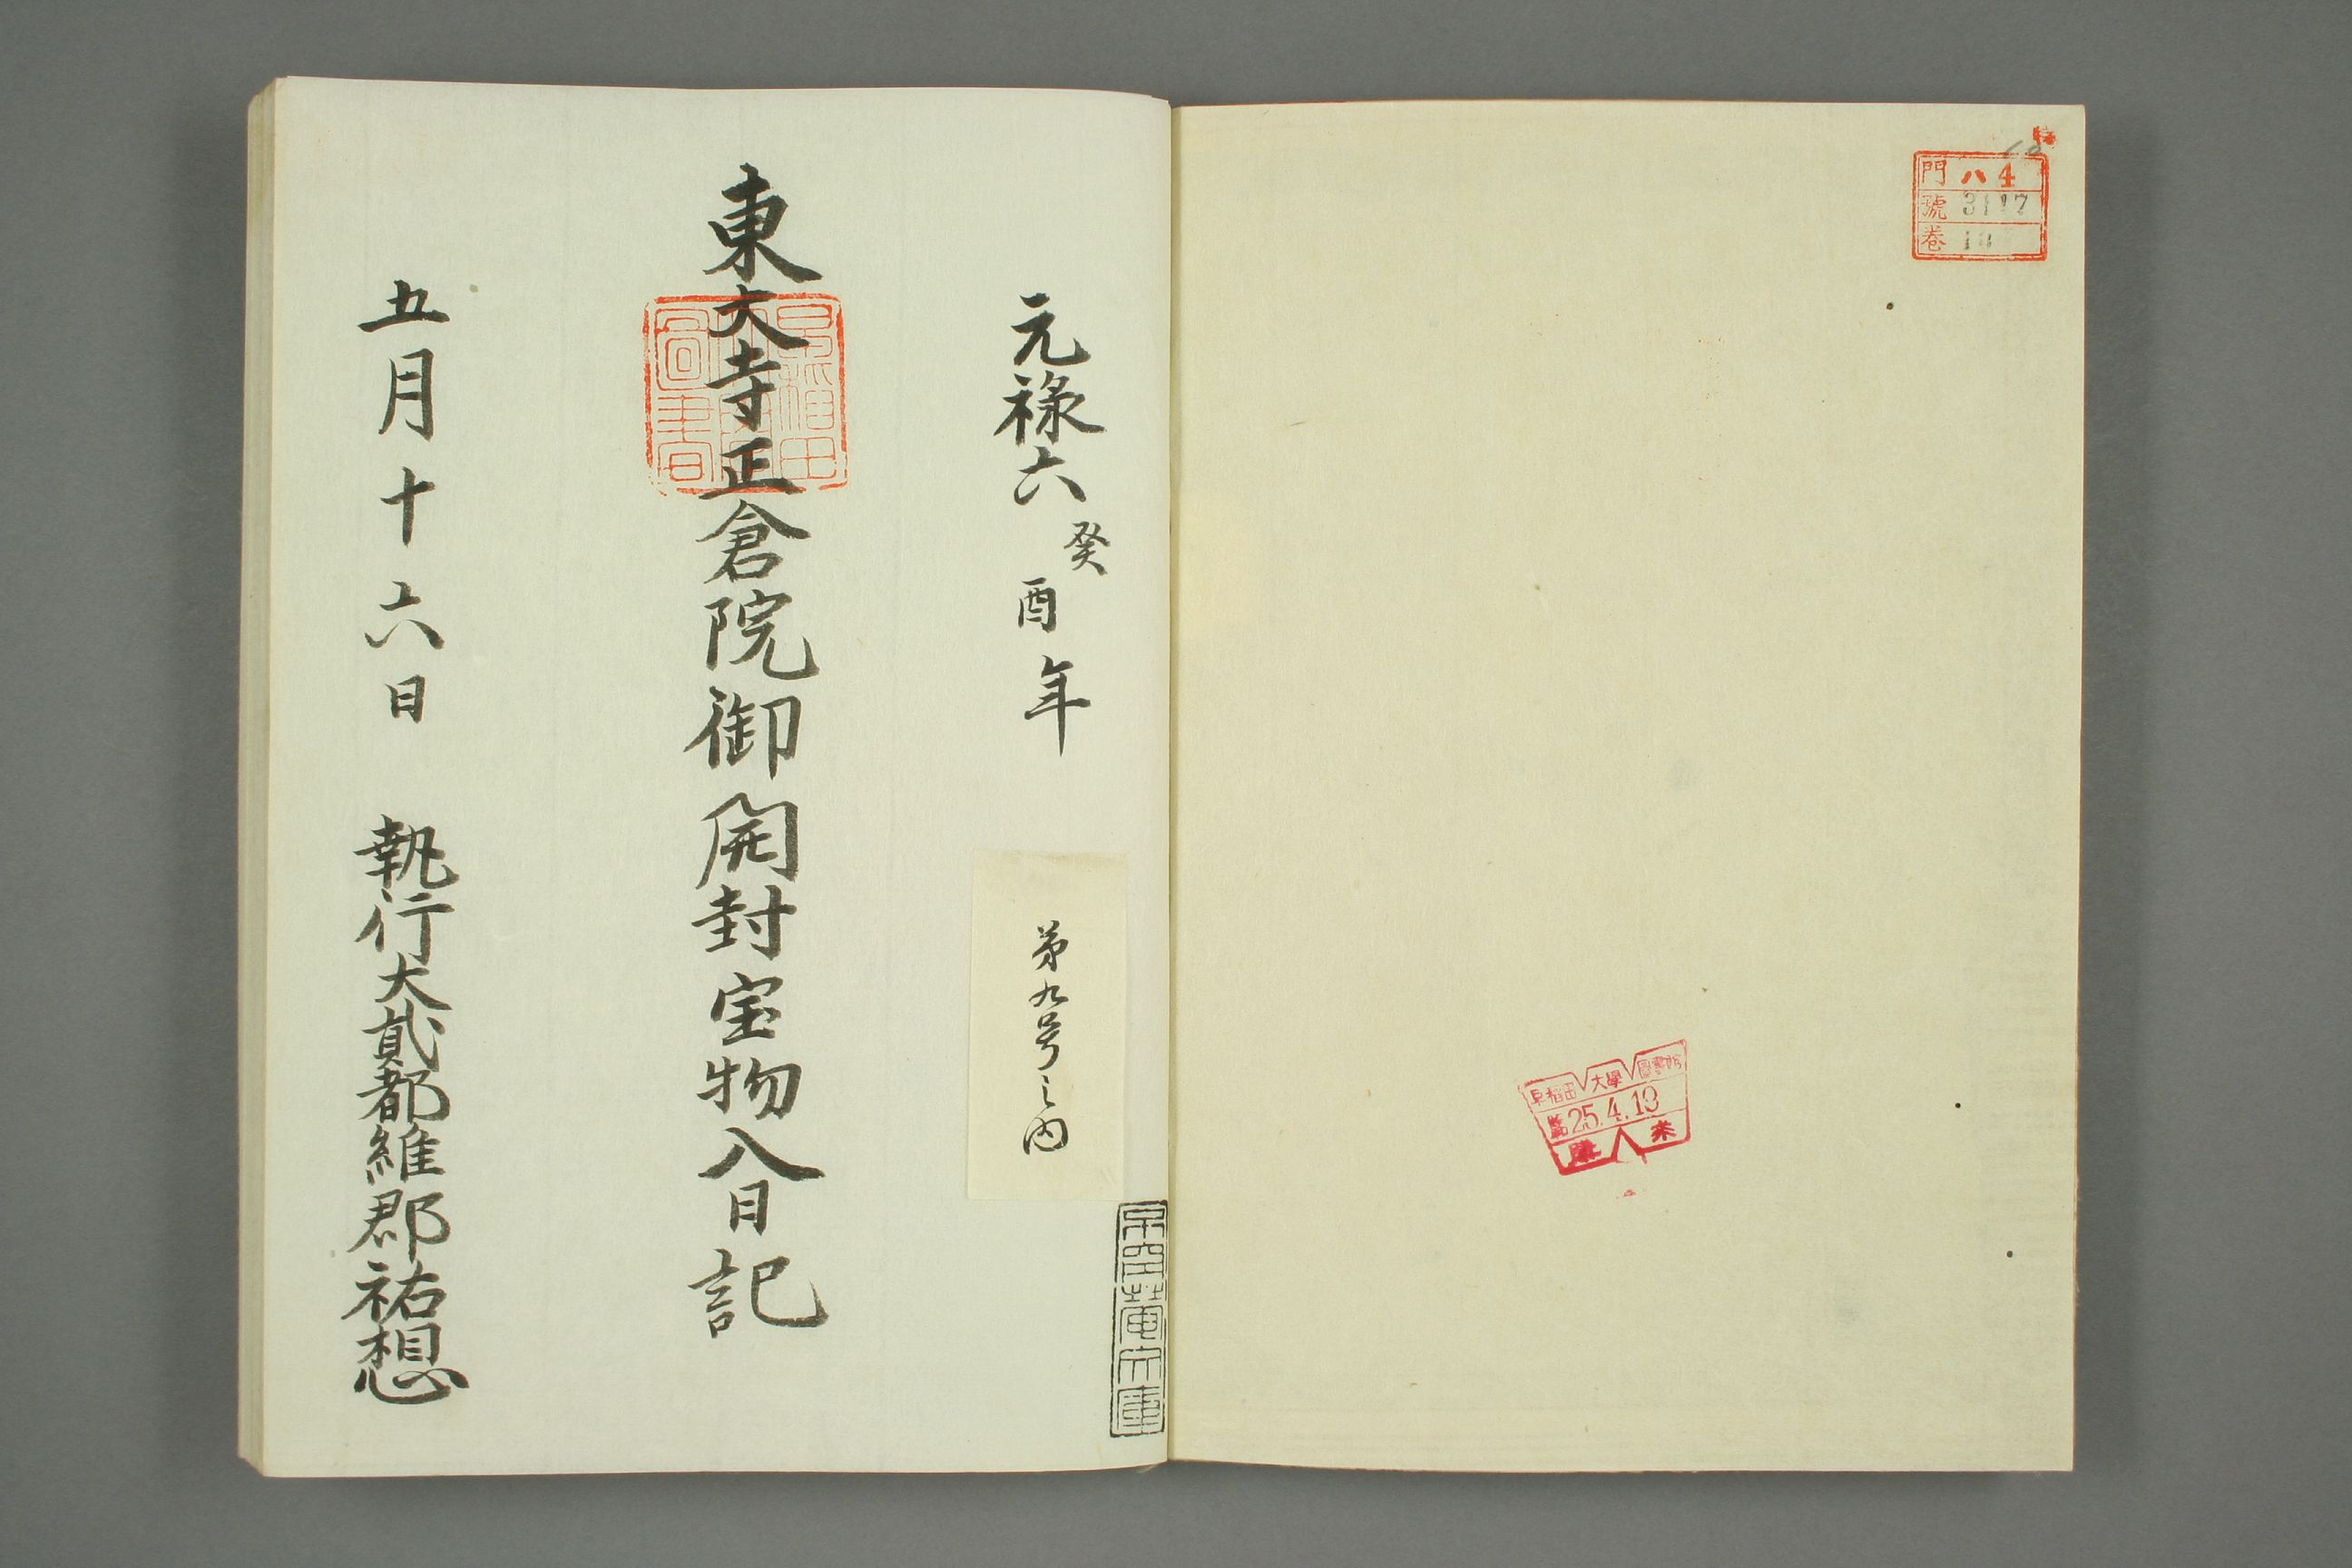 門 ハ4
號 3117
卷 10
早稲田大學圖書館
25.4.13
購 来
元禄六癸酉年
第九号之内
東大寺正倉院御開封宝物入日記
早稲田大学圖書
五月十六日 執行大貳都維那祐想